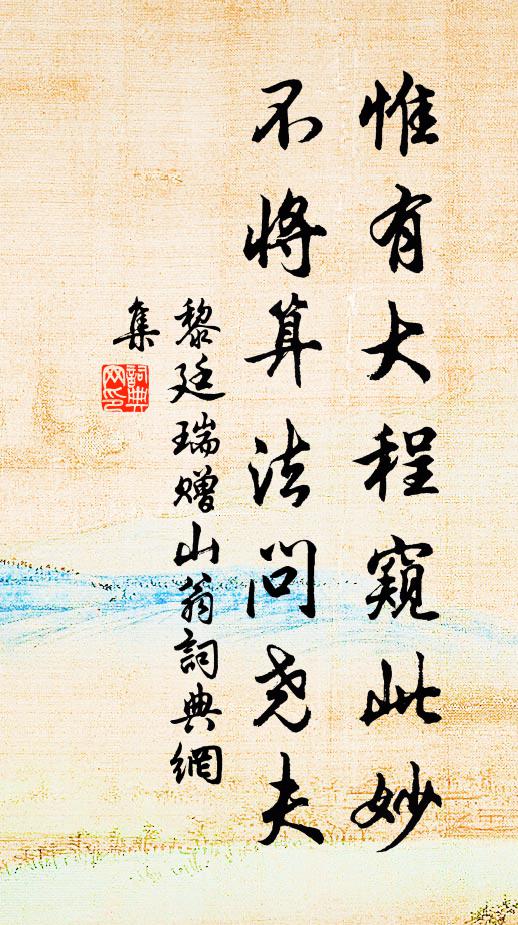 惟有大程窥此妙
不将算法问尧夫
黎廷瑞赠山翁詞典網
集
詞典
网印